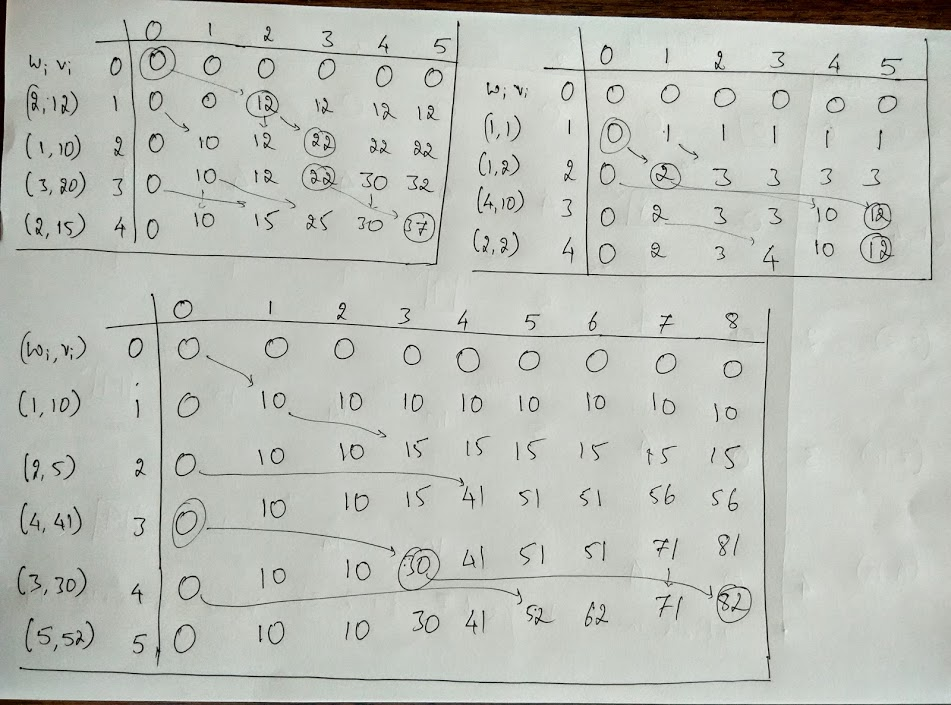 0 1 2 3 4 5
wi vi 0 0 0 0 0 0 0
(2,12) 1 0 0 12 12 12 12
(1,10) 2 0 10 12 22 22 22
(3,20) 3 0 10 12 22 30 32
(2,15) 4 0 10 15 25 30 37
0 1 2 3 4 5
wi vi 0 0 0 0 0 0 0
(1,1) 1 0 1 1 1 1 1
(1,2) 2 0 2 3 3 3 3
(4,10) 3 0 2 3 3 10 12
(2,2) 4 0 2 3 4 10 12
0 1 2 3 4 5 6 7 8
(wi,vi) 0 0 0 0 0 0 0 0 0 0
(1,10) 1 0 10 10 10 10 10 10 10 10
(2,5) 2 0 10 10 15 15 15 15 15 15
(4,41) 3 0 10 10 15 41 51 51 56 56
(3,30) 4 0 10 10 30 41 51 51 71 81
(5,52) 5 0 10 10 30 41 52 62 71 82